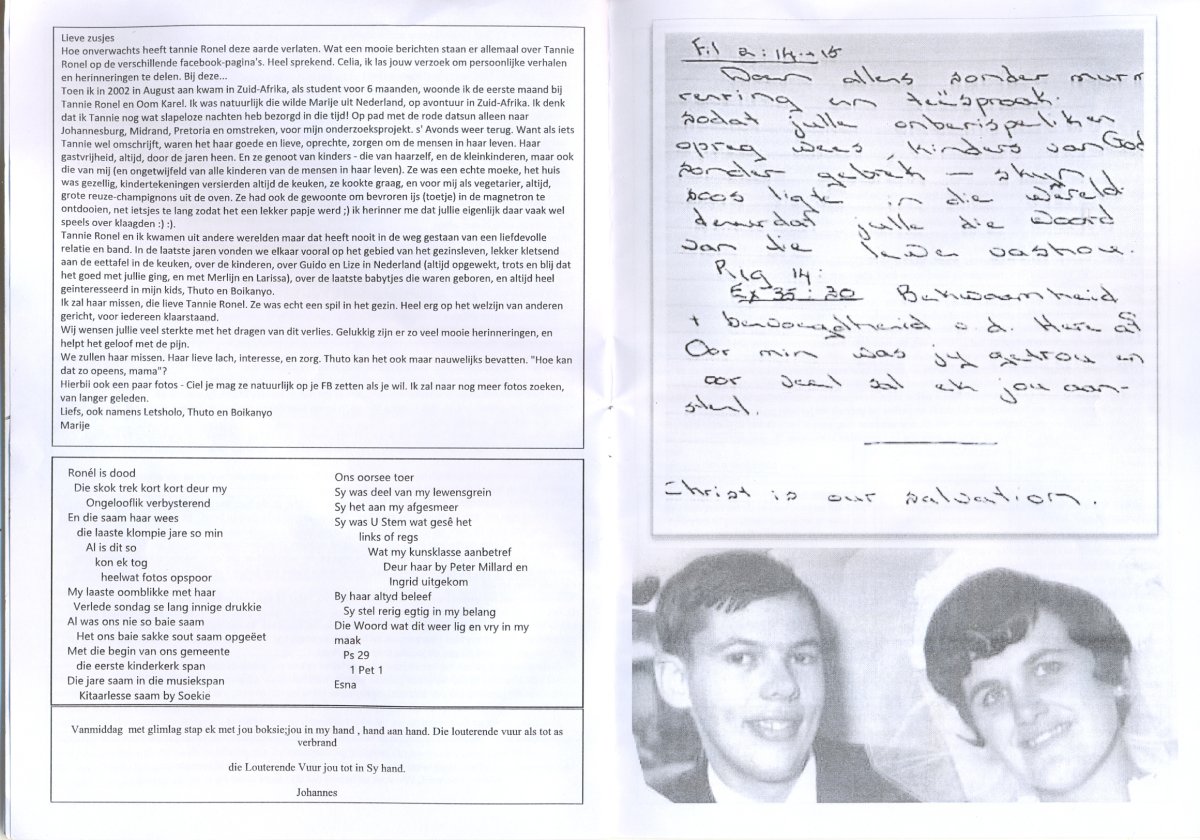 Lieve zusjes
Hoe onverwachts heeft tannie Ronel deze aarde verlaten. Wat een mooie berichten staan er allemaal over Tannie
Ronel op de verschillende facebook-pagina's. Heel sprekend. Celia, ik las jouw verzoek om persoonlijke verhalen
en herinneringen te delen. Bij deze...
Toen ik in 2002 in August aan kwam in Zuid-Afrika, als student voor 6 maanden, woonde ik de eerste maand bij
Tannie Ronel en Oom Karel. Ik was natuurlijk die wilde Marije uit Nederland, op avontuur in Zuid-Afrika. Ik denk
dat ik Tannie nog wat slapeloze nachten heb bezorgd in die tijd! Op pad met de rode datsun alleen naar
Johannesburg, Midrand, Pretoria en omstreken, voor mijn onderzoeksprojekt. s' Avonds weer terug. Want als iets
Tannie wel omschrijft, waren het haar goede en lieve, oprechte, zorgen om de mensen in haar leven. Haar
gastvrijheid, altijd, door de jaren heen. En ze genoot van kinders - die van haarzelf, en de kleinkinderen, maar ook
die van mij (en ongetwijfeld van alle kinderen van de mensen in haar leven). Ze was een echte moeke, het huis
was gezellig, kindertekeningen versierden altijd de keuken, ze kookte graag, en voor mij als vegetarier, altijd,
grote reuze-champignons uit de oven. Ze had ook de gewoonte om bevroren ijs (toetje) in de magnetron te
ontdooien, net ietsjes te lang zodat het een lekker papje werd ;) ik herinner me dat jullie eigenlijk daar vaak wel
speels over klaagden :) :).
Tannie Ronel en ik kwamen uit andere werelden maar dat heeft nooit in de weg gestaan van een liefdevolle
relatie en band. In de laatste jaren vonden we elkaar vooral op het gebied van het gezinsleven, lekker kletsend
aan de eettafel in de keuken, over de kinderen, over Guido en Lize in Nederland (altijd opgewekt, trots en blij dat
het goed met jullie ging, en met Merlijn en Larissa), over de laatste babytjes die waren geboren, en altijd heel
geinteresseerd in mijn kids, Thuto en Boikanyo.
Ik zal haar missen, die lieve Tannie Ronel. Ze was echt een spil in het gezin. Heel erg op het welzijn van anderen
gericht, voor iedereen klaarstaand.
Wij wensen jullie veel sterkte met het dragen van dit verlies. Gelukkig zijn er zo veel mooie herinneringen, en
helpt het geloof met de pijn.
We zullen haar missen. Haar lieve lach, interesse, en zorg. Thuto kan het ook maar nauwelijks bevatten. "Hoe kan
dat zo opeens, mama"?
Hierbii ook een paar fotos - Ciel je mag ze natuurlijk op je FB zetten als je wil. Ik zal naar nog meer fotos zoeken,
van langer geleden.
Liefs, ook namens Letsholo, Thuto en Boikanyo
Marije
Ronél is dood
Die skok trek kort kort deur my
Ongelooflik verbysterend
En die saam haar wees
die laaste klompie jare so min
Al is dit so
kon ek tog
heelwat fotos opspoor
My laaste oomblikke met haar
Verlede sondag se lang innige drukkie
Al was ons nie so baie saam
Het ons baie sakke sout saam opgeëet
Met die begin van ons gemeente
die eerste kinderkerk span
Die jare saam in die musiekspan
Kitaarlesse saam by Soekie
Ons oorsee toer
Sy was deel van my lewensgrein
Sy het aan my afgesmeer
Sy was U Stem wat gesê het
links of regs
Wat my kunsklasse aanbetref
Deur haar by Peter Millard en
Ingrid uitgekom
By haar altyd beleef
Sy stel rerig egtig in my belang
Die Woord wat dit weer lig en vry in my
maak
Ps 29
1 Pet 1
Esna
Vanmiddag met glimlag stap ek met jou boksie;jou in my hand , hand aan hand. Die louterende vuur als tot as
verbrand
die Louterende Vuur jou tot in Sy hand.
Johannes
Fil 2:14-15
Doen alles sonder murm
rering en teëspraak.
sodat julle onberispelik en
opreg wees, kinders van God
sonder gebrek – skyn
soos ligte in die wêreld
deurdat julle die woord
van die lewe vashou.
Rig 14:
Ex 35:30 Bekwaamheid
+ bevoegdheid v.d. Here af
Oor min was jy getrou en
oor veel sal ek jou aan-
stel.
Christ is our salvation.